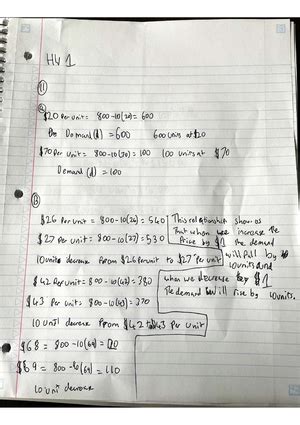 HW 1
①
ⓐ
$20 Per unit = 800-10(20) = 600
Demand (d) = 600 600 units at $20
$70 Per unit = 800-10(70) = 100 100 units at $70
Demand (d) = 100
ⓑ
$26 Per unit = 800-10(26) = 540
$27 Per unit = 800-10(27) = 530
10 units decrease from $26 Per unit to $27 Per unit
$42 Per unit = 800-10(42) = 380
$43 Per unit = 800-10(43) = 370
10 unit decrease from $42 to $43 Per unit
$68 = 800-10(68) = 120
$69 = 800-10(69) = 110
10 unit decrease
This relationship shows us
that when we increase the
Price by $1 the demand
will fall by
10 units and
when we decrease by $1
the demand will rise by 10 units.